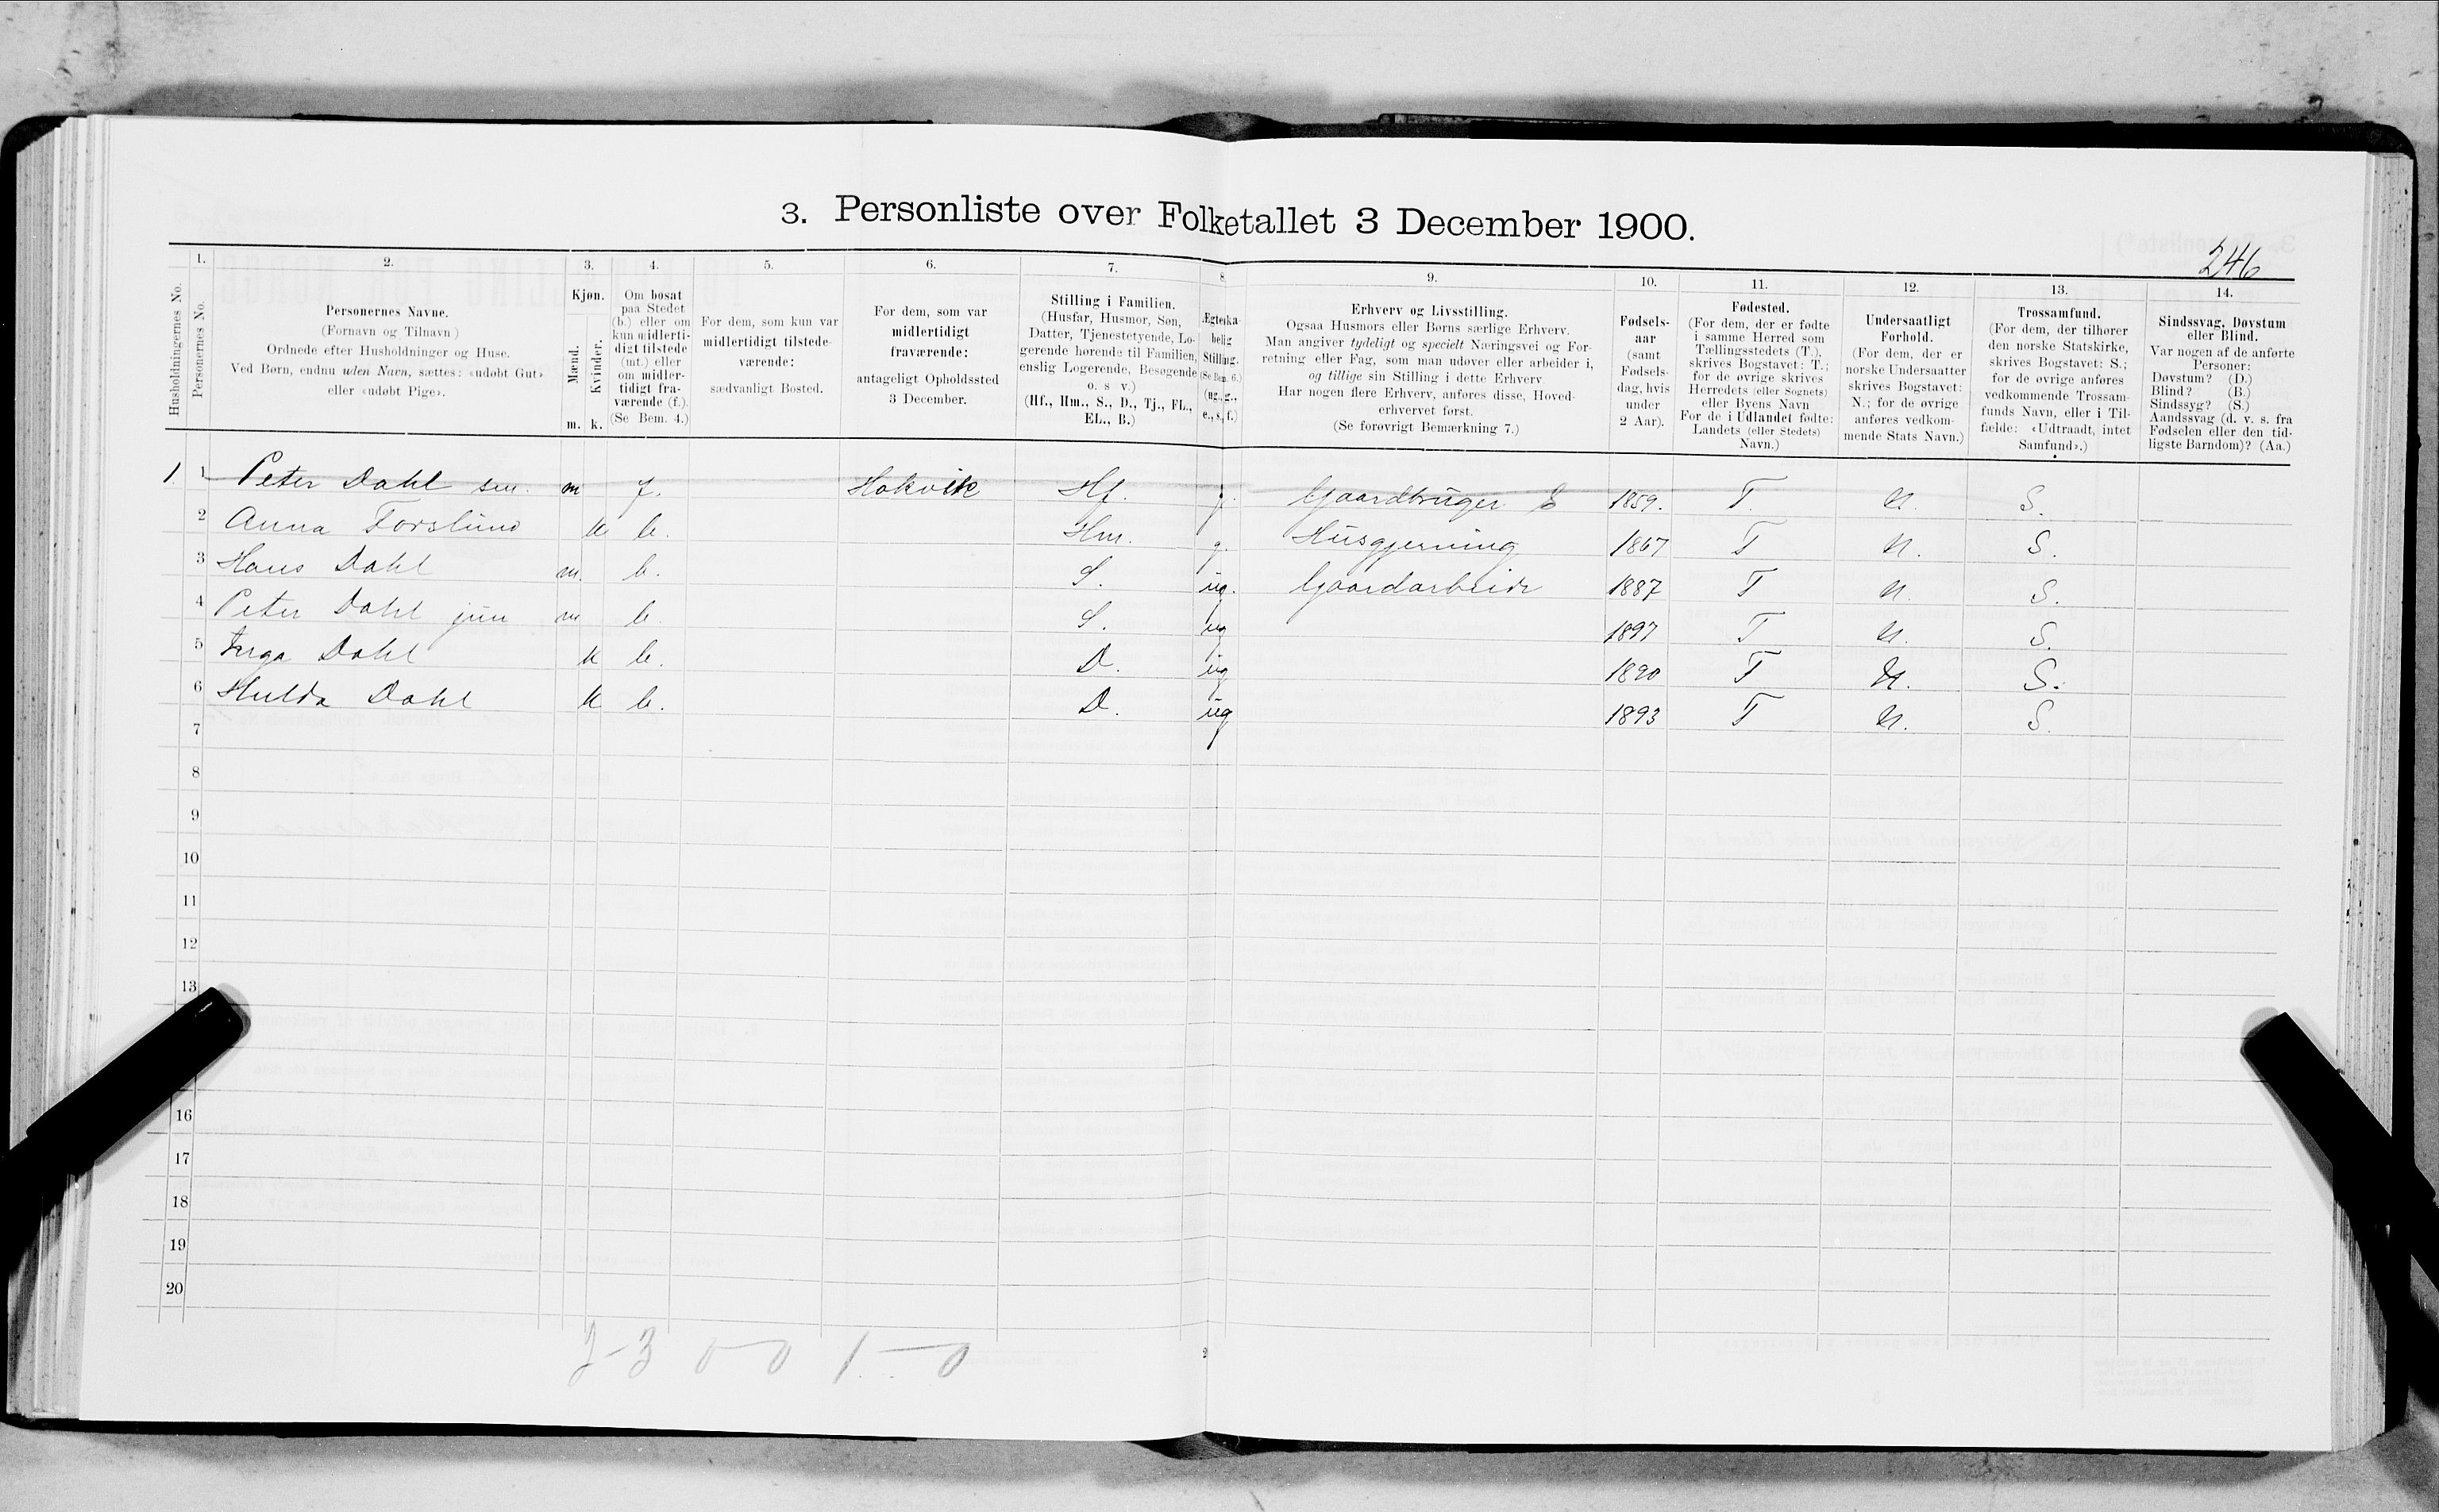 3. Personliste over Folketallet 3 December 1900.
246
Husholdningernes No.
1.
Personernes No.
2.
Personernes Navne.
(Fornavn og Tilnavn)
Ordnede efter Husholdninger og Huse.
Ved Børn, endnu uden Navn, sættes: «udøbt Gut»
eller «udøbt Pige».
3.
Kjøn.
Mænd.
Kvinder.
m. k.
4.
Om bosat
paa Stedet
(b.) eller om
kun midlerti-
digt tilstede
(mt.) eller
om midler-
tidigt fra-
værende (f.).
(Se Bem. 4.)
5.
For dem, som kun var
midlertidigt tilstede-
værende:
sædvanligt Bosted.
6.
For dem, som var
midlertidigt
fraværende:
antageligt Opholdssted
3 December.
7.
Stilling i Familien.
(Husfar, Husmor, Søn,
Datter, Tjenestetyende, Lo-
gerende hørende til Familien,
enslig Logerende, Besøgende
o. s v.)
(Hf., Hm., S., D., Tj., FL.,
EL., B.)
8.
Ægteska-
belig
Stilling.
(Se Bem. 6.)
(ug., g.,
e., s., f.)
9.
Erhverv og Livsstilling.
Ogsaa Husmors eller Børns særlige Erhverv.
Man angiver tydeligt og specielt Næringsvei og For-
retning eller Fag, som man udøver eller arbeider i,
og tillige sin Stilling i dette Erhverv
Har nogen flere Erhverv, anføres disse, Hoved-
erhvervet først.
(Se forøvrigt Bemærkning 7.)
10.
Fødsels-
aar
(samt
Fødsels-
dag, hvis
under
2 Aar).
11.
Fødested.
(For dem, der er fødte
i samme Herred som
Tællingsstedets (T.),
skrives Bogstavet: T.;
for de øvrige skrives
Herredets (eller Sognets)
eller Byens Navn
For de i Udlandet fødte:
Landets (eller Stedets)
Navn.)
12.
Undersaatligt
Forhold.
(For dem, der er
norske Undersaatter
skrives Bogstavet:
N.; for de øvrige
anføres vedkom-
mende Stats Navn.)
13.
Trossamfund.
(For dem, der tilhører
den norske Statskirke,
skrives Bogstavet: S.;
for de øvrige anføres
vedkommende Trossam-
funds Navn, eller i Til-
fælde: «Udtraadt, intet
Samfund».)
14.
Sindssvag, Døvstum
eller Blind.
Var nogen af de anførte
Personer:
Døvstum? (D.)
Blind? (B.)
Sindssyg? (S.)
Aandssvag (d. v. s. fra
Fødselen eller den tid-
ligste Barndom)? (Aa.)
1 1 Peter Dahl sen. m f. Hokvik Hf. g. Gaardbruger S 1859. T. N. S.
2 Anna Forslund k b. Hm. g. Husgjerning 1867 T N. S.
3 Hans Dahl m. b. S. ug. Gaardarbeide 1887 T N. S.
4 Peter Dahl jun m b. S. ug 1897 T N. S.
5 Inga Dahl k b. D. ug 1890 T N. S.
6 Hulda Dahl k b. D. ug 1893 T N. S.
7
8
9
10
11
12
13
16
17
18
19
20
2-3 0-0 1-0